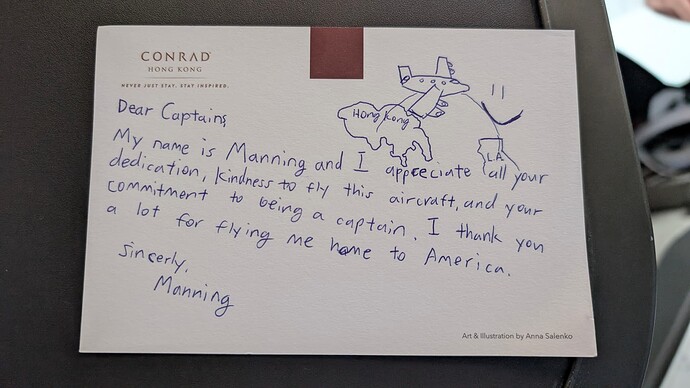 CONRAD
HONG KONG
NEVER JUST STAY. STAY INSPIRED.
Hong Kong
L.A.
Dear Captains,
My name is Manning and I appreciate all your
dedication, kindness to fly this aircraft, and your
commitment to being a captain. I thank you
a lot for flying me home to America.
sincerly,
Manning
Art & Illustration by Anna Salenko